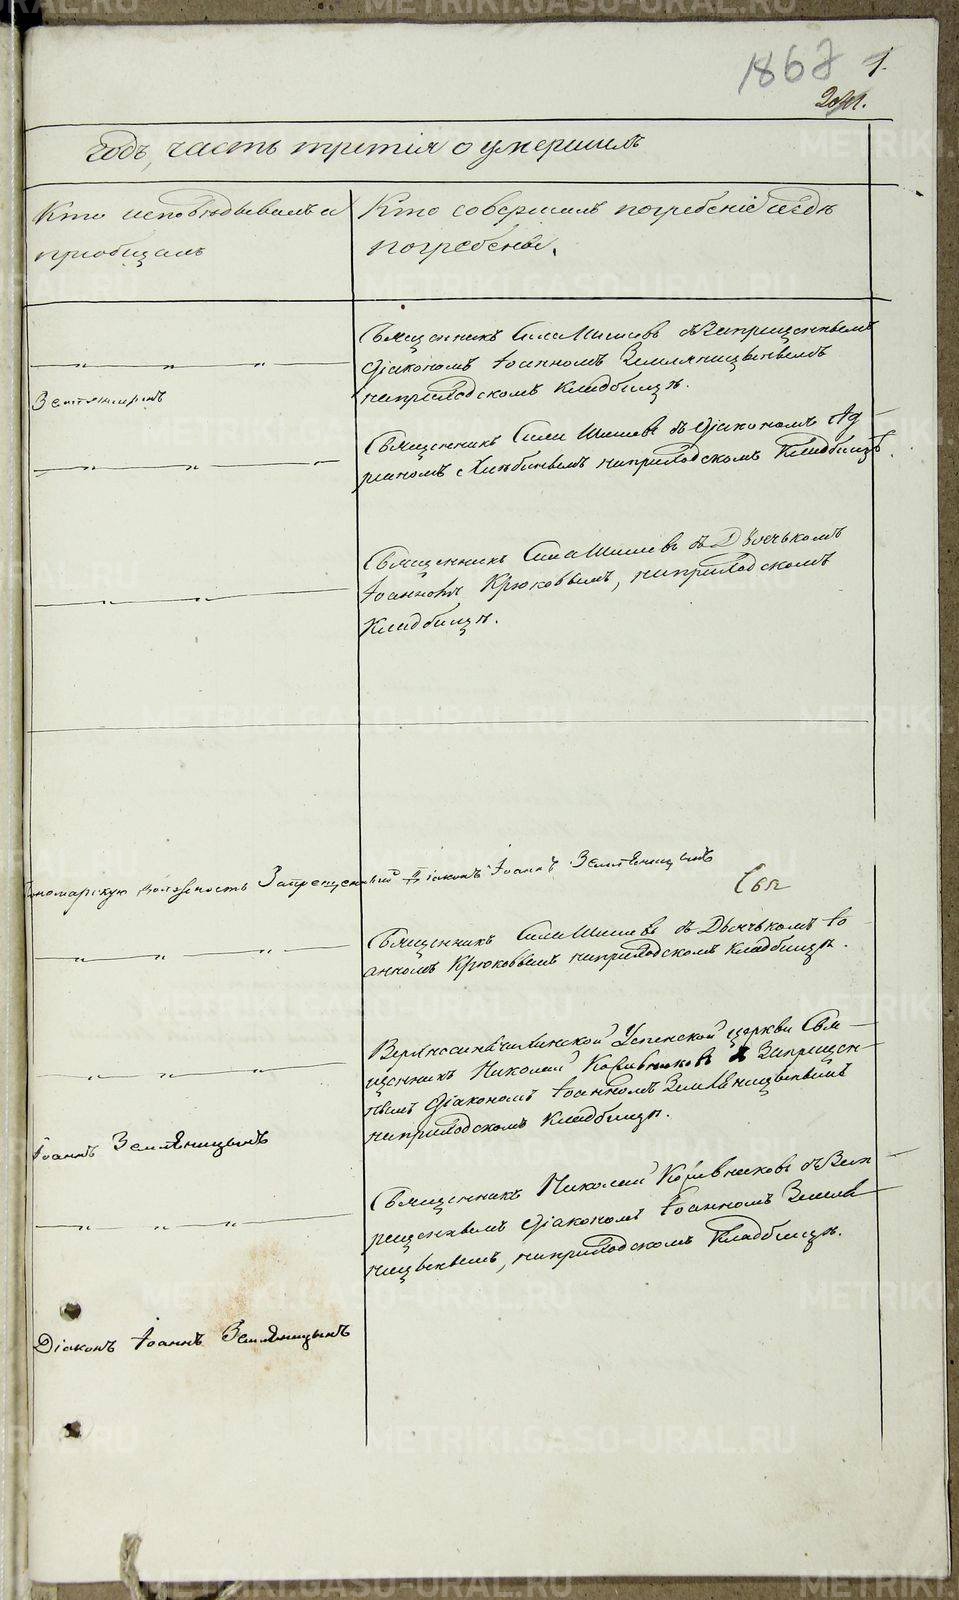 1867
1.
Годъ, часть третія о умершихъ
Кто исповѣдывалъ и
пріобщалъ
Кто совершалъ погребеніе и гдѣ
погребены.
Священникъ Сила Шишевъ съ Запрещеннымъ
Діакономъ Іоанномъ Земляницынымъ
наприходскомъ Кладбищѣ.
Земляницынъ
Священникъ Сила Шишевъ съ Діакономъ Ад
ріаномъ наприходскомъ Кладбищѣ.
Священникъ Сила Шишевъ съ Дьячькомъ
Іоанномъ Крюковымъ, наприходскомъ
Кладбищѣ.
Пономарскую должность Запрещенный Діаконъ Іоаннъ Земляницынъ
Священникъ Сила Шишевъ съ Дьячькомъ Іо
анномъ Крюковымъ наприходскомъ Кладбищѣ.
Успенской церкви Свя
щенникъ Николай съ Запрещен
нымъ Діакономъ Іоанномъ Земляницынымъ
наприходскомъ Кладбищѣ.
Іоаннъ Земляницынъ
Священникъ Николай съ Зап
рещеннымъ Діакономъ Іоанномъ Земля
ницынымъ, наприходскомъ Кладбищѣ.
Діаконъ Іоаннъ Земляницынъ
METRIKI.GASO-URAL.RU